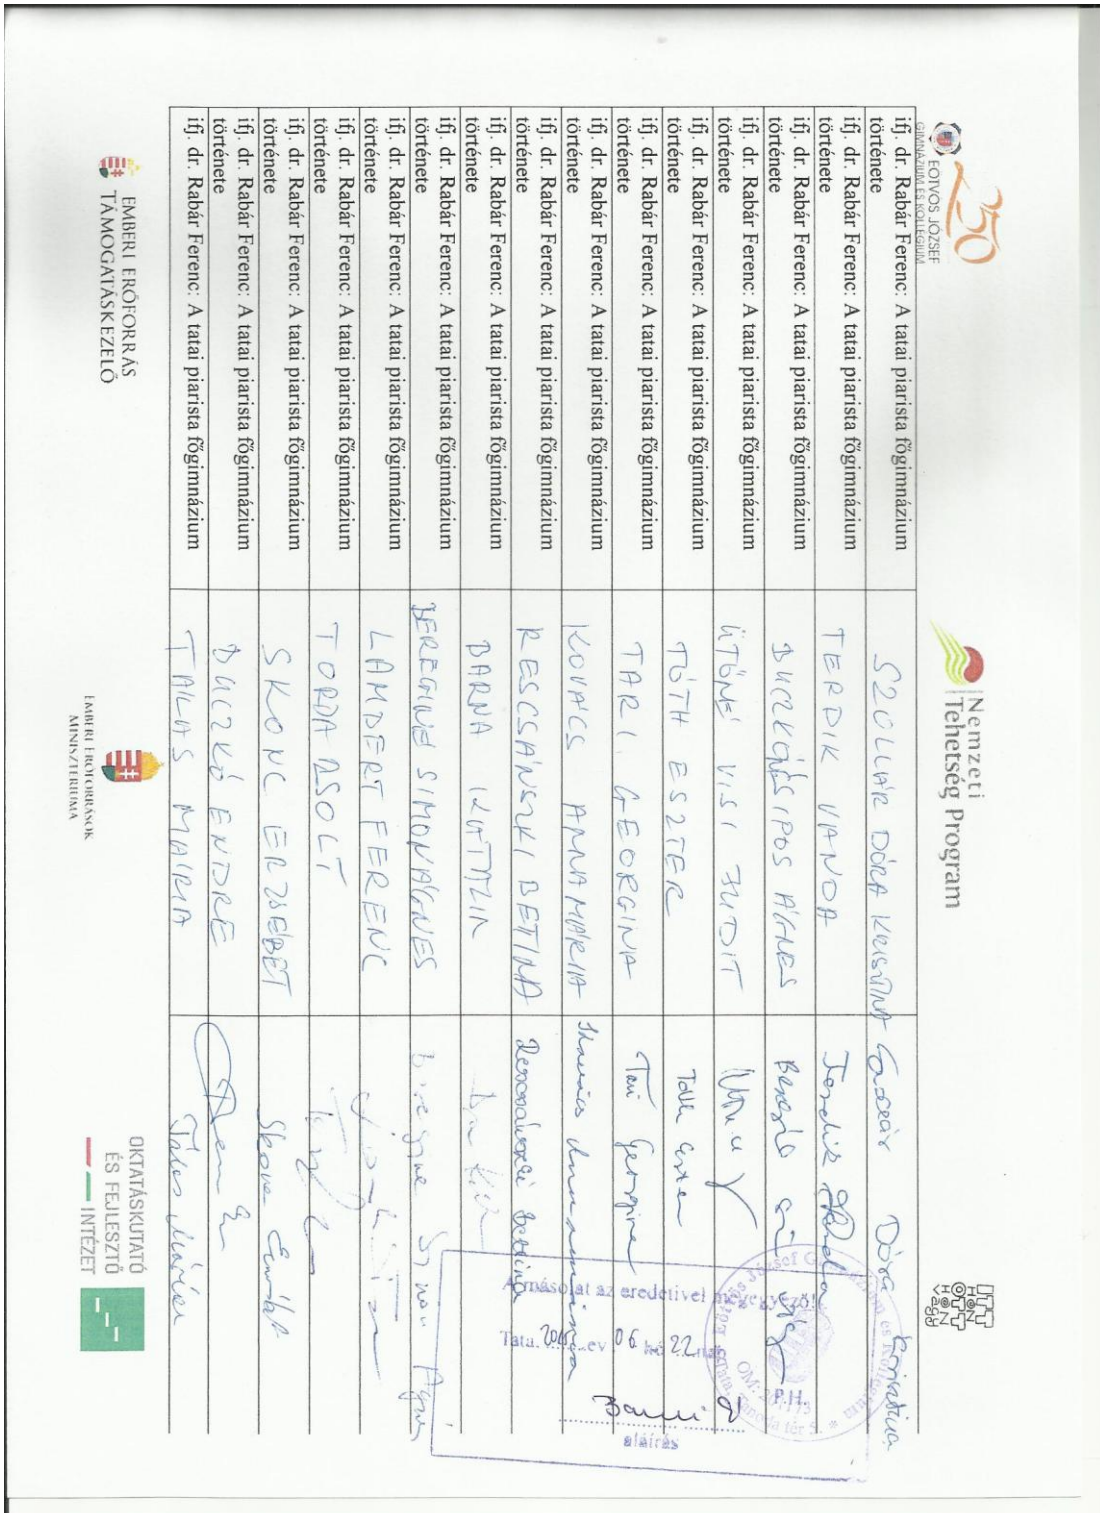 250
EÖTVÖS JÓZSEF
GIMNÁZIUM ÉS KOLLÉGIUM
Nemzeti
Tehetség Program
ITT
HON
OTT
HON
vagy
ifj. dr. Rabár Ferenc: A tatai piarista főgimnázium története SZOLLÁR DÓRA KRISZTINA Dóra Krisztina
ifj. dr. Rabár Ferenc: A tatai piarista főgimnázium története TERDIK VANDA Terdik
ifj. dr. Rabár Ferenc: A tatai piarista főgimnázium története BUCZKÓNÉ SIPOS ÁGNES
ifj. dr. Rabár Ferenc: A tatai piarista főgimnázium története ÜTŐNÉ VISI JUDIT
ifj. dr. Rabár Ferenc: A tatai piarista főgimnázium története TÓTH ESZTER Tóth Eszter
ifj. dr. Rabár Ferenc: A tatai piarista főgimnázium története TARI GEORGINA Tari Georgina
ifj. dr. Rabár Ferenc: A tatai piarista főgimnázium története KOVÁCS ANNAMÁRIA Kovács Annamária
ifj. dr. Rabár Ferenc: A tatai piarista főgimnázium története RESCSÁNSZKI BETINA Rescsánszki Betina
ifj. dr. Rabár Ferenc: A tatai piarista főgimnázium története BARNA KATALIN
ifj. dr. Rabár Ferenc: A tatai piarista főgimnázium története BEREGINÉ SIMON ÁGNES Bereginé Simon Ágnes
ifj. dr. Rabár Ferenc: A tatai piarista főgimnázium története LAMPERT FERENC
ifj. dr. Rabár Ferenc: A tatai piarista főgimnázium története TORDA ZSOLT
ifj. dr. Rabár Ferenc: A tatai piarista főgimnázium története SKONC ERZSÉBET
ifj. dr. Rabár Ferenc: A tatai piarista főgimnázium története BUCZKÓ ENDRE
ifj. dr. Rabár Ferenc: A tatai piarista főgimnázium története TALAS MÁRIA
A másolat az eredetivel megegyező!
Tata. év 06 hó 22 nap
P.H.
aláírás
EMBERI ERŐFORRÁS
TÁMOGATÁSKEZELŐ
EMBERI ERŐFORRÁSOK
MINISZTÉRIUMA
OKTATÁSKUTATÓ
ÉS FEJLESZTŐ
INTÉZET